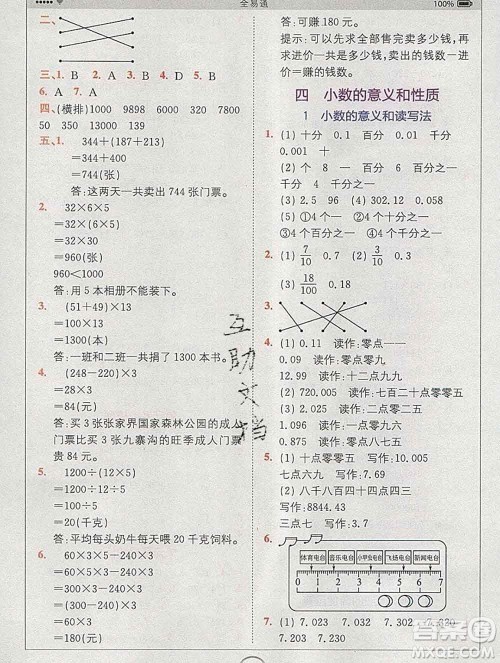 全易通
100%
二、
三、1. B 2. B 3. C 4. D 5. B
6. A 7. A
四、(横排)1000 9898 6000 300
50 350 13000 139
五、1. 344+(187+213)
=344+400
=744(张)
答:这两天一共卖出 744 张门票。
2. 32×6×5
=32×(6×5)
=32×30
=960(张)
960<1000
答:用 5 本相册不能装下。
3. (51+49)×13
=100×13
=1300(本)
答:一班和二班一共捐了 1300 本书。
4. (248-220)×3
=28×3
=84(元)
答:买 3 张张家界国家森林公园的成人
门票比买 3 张九寨沟的旺季成人门票
贵 84 元。
5. 1200÷(12×5)
=1200÷60
=20(千克)
答:平均每头奶牛每天喂 20 千克饲料。
6. 60×3×5-240×3
=60×5×3-240×3
=(300-240)×3
=60×3
=180(元)
答:可赚 180 元。
提示:先求全部售完卖多少钱,再求
进价一共是多少钱,卖的钱数-进价=赚的钱数。
四 小数的意义和性质
1 小数的意义和读写法
1. (1)十分 0.1 百分 0.01 千分
0.001 十
(2)个 8 一 百分 6 百分之一
(3)5.06 (4)302.12 0.058
(5)①4个十分之一 ②4个百分之一
③4个千分之一
2. (1) 7/10 0.7 (2) 3/10 0.3
(3) 18/100 0.18
3.
4. (1)0.11 读作:零点一一
0.99 读作:零点九九
12.99 读作:十二点九九
(2)720.025 读作:七百二十点零二五
(3)2.025 读作:二点零二五
1.025 读作:一点零二五
0.875 读作:零点八七五
5. (1)十五点三四 写作:15.34
七点六九 写作:7.69
(2)八千八百四十四点四三
写作:8844.43
三点七 写作:3.7
6.
体育电台 音乐电台 小甲虫电台 飞扬电台 新闻电台
0 1 2 3 4 5 6 7
7. (1)7.023 7.032 (2)7.230
7.203 (3)7.302 7.320
互助文档
作业帮
MXQE.COM